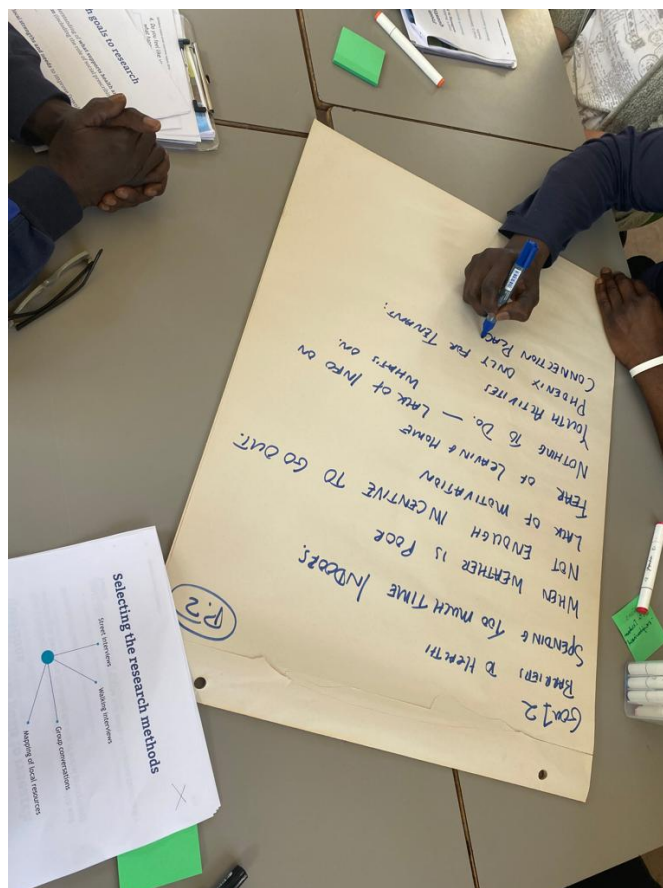 Goal 2
P.2
BARRIERS TO HEALTH
SPENDING TOO MUCH TIME INDOORS.
WHEN WEATHER IS POOR
NOT ENOUGH INCENTIVE TO GO OUT.
LACK OF MOTIVATION
FEAR OF LEAVING HOME
NOTHING TO DO. — LACK OF INFO ON
WHAT'S ON.
YOUTH ACTIVITIES
PHOENIX ONLY FOR TENANT:
CONNECTION
Selecting the research methods
Street interviews
Walking interviews
Group conversations
Mapping of local resources
goals to research